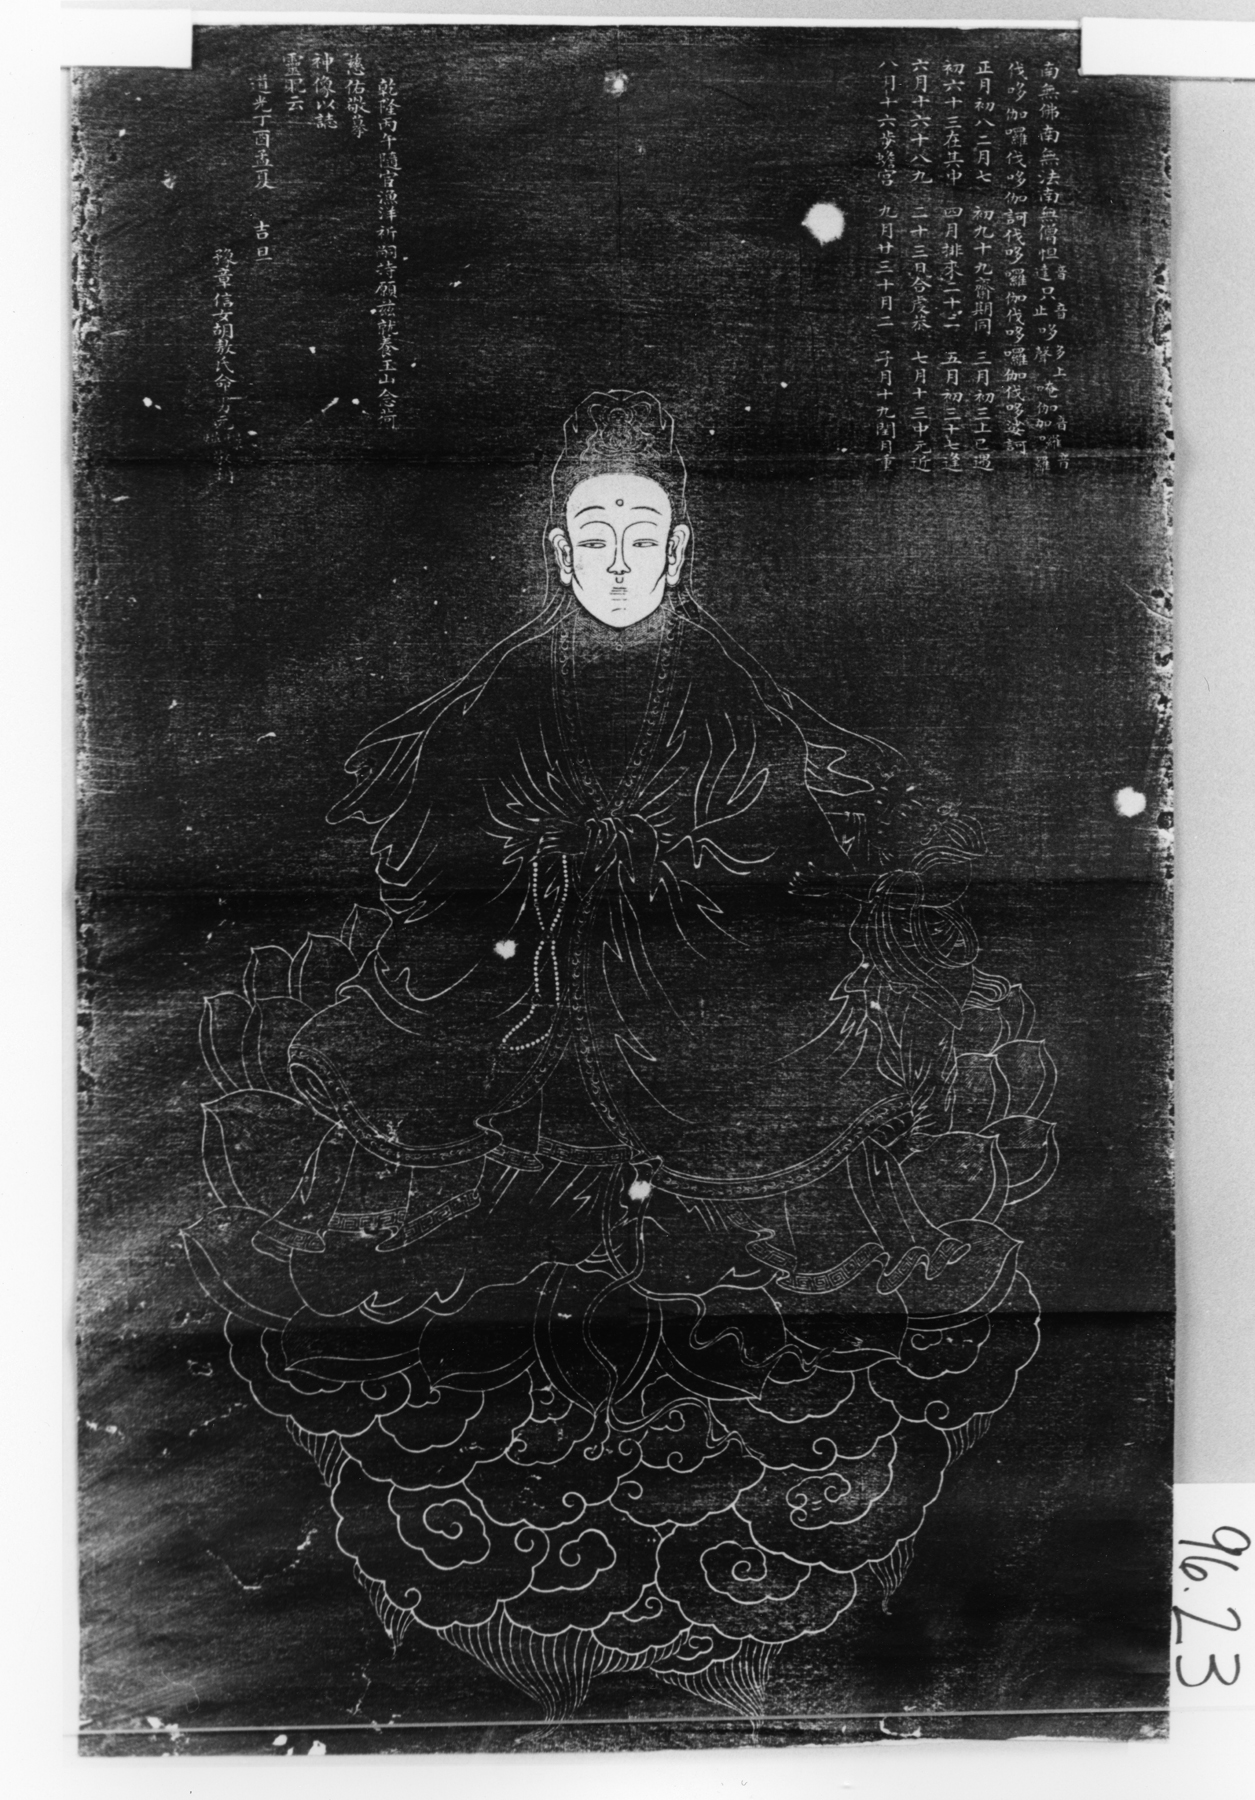 南無佛南無法南無僧怛達只哆唵伽囉
音 音多上 音羅音
止聲
伐哆伽囉伐哆伽訶伐哆囉伽伐哆囉伽伐哆娑訶
正月初八二月七 初九十九齋期同 三月初三上巳遇
初六十三在其中 四月排來二十二 五月初三十七逢
六月十六十八九 二十三日合虔恭 七月十三中元近
八月十六步蟾宮 九月廿三十月二 子月十九閏月重
乾隆丙午隨宦漁洋祈嗣 願 養玉山念荷
慈佑敬摹
神像以誌
靈 云
道光丁酉孟夏 吉旦
豫章信女胡敖氏命
96.23